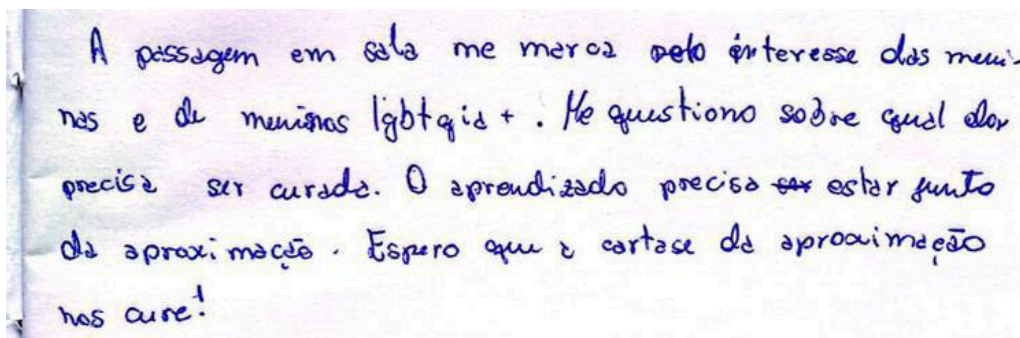 A passagem em sala me marca pelo interesse das meni-
nas e de meninos lgbtqia+. Me questiono sobre qual dor
precisa ser curada. O aprendizado precisa estar junto
da aproximação. Espero que a cartase da aproximação
nos cure!